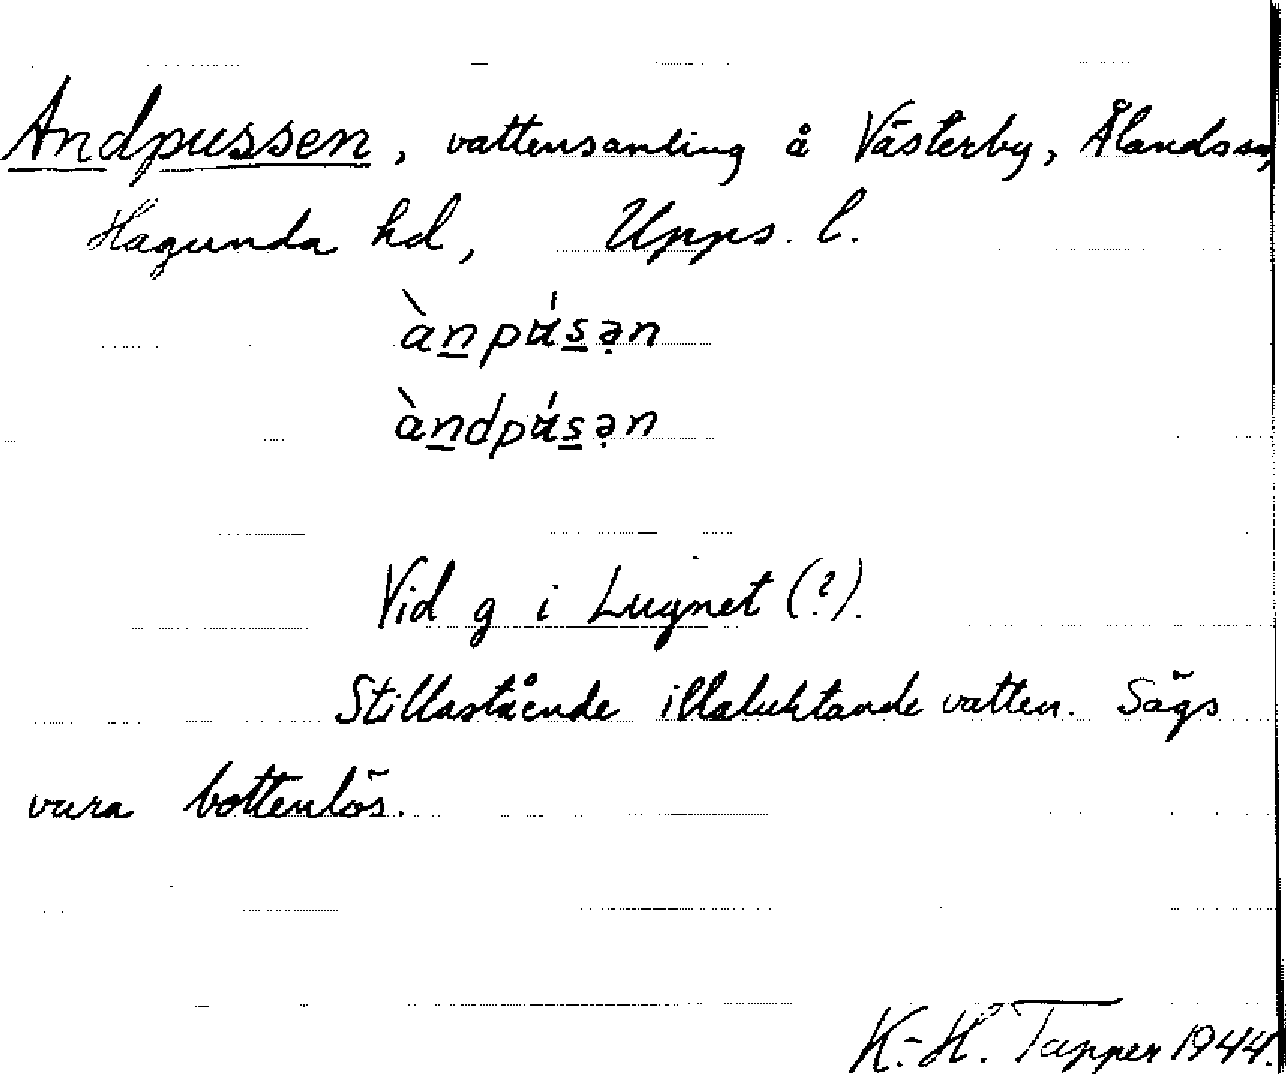 Andpussen, vattensamling å Västerby, Ålands sn,
Hagunda hd, Upps. l.
ànpúsən
àndpúsən
Vid g i Lugnet (?).
Stillastående illaluktande vatten. Sägs
vara bottenlös.
K.-H. Tapper 1944.